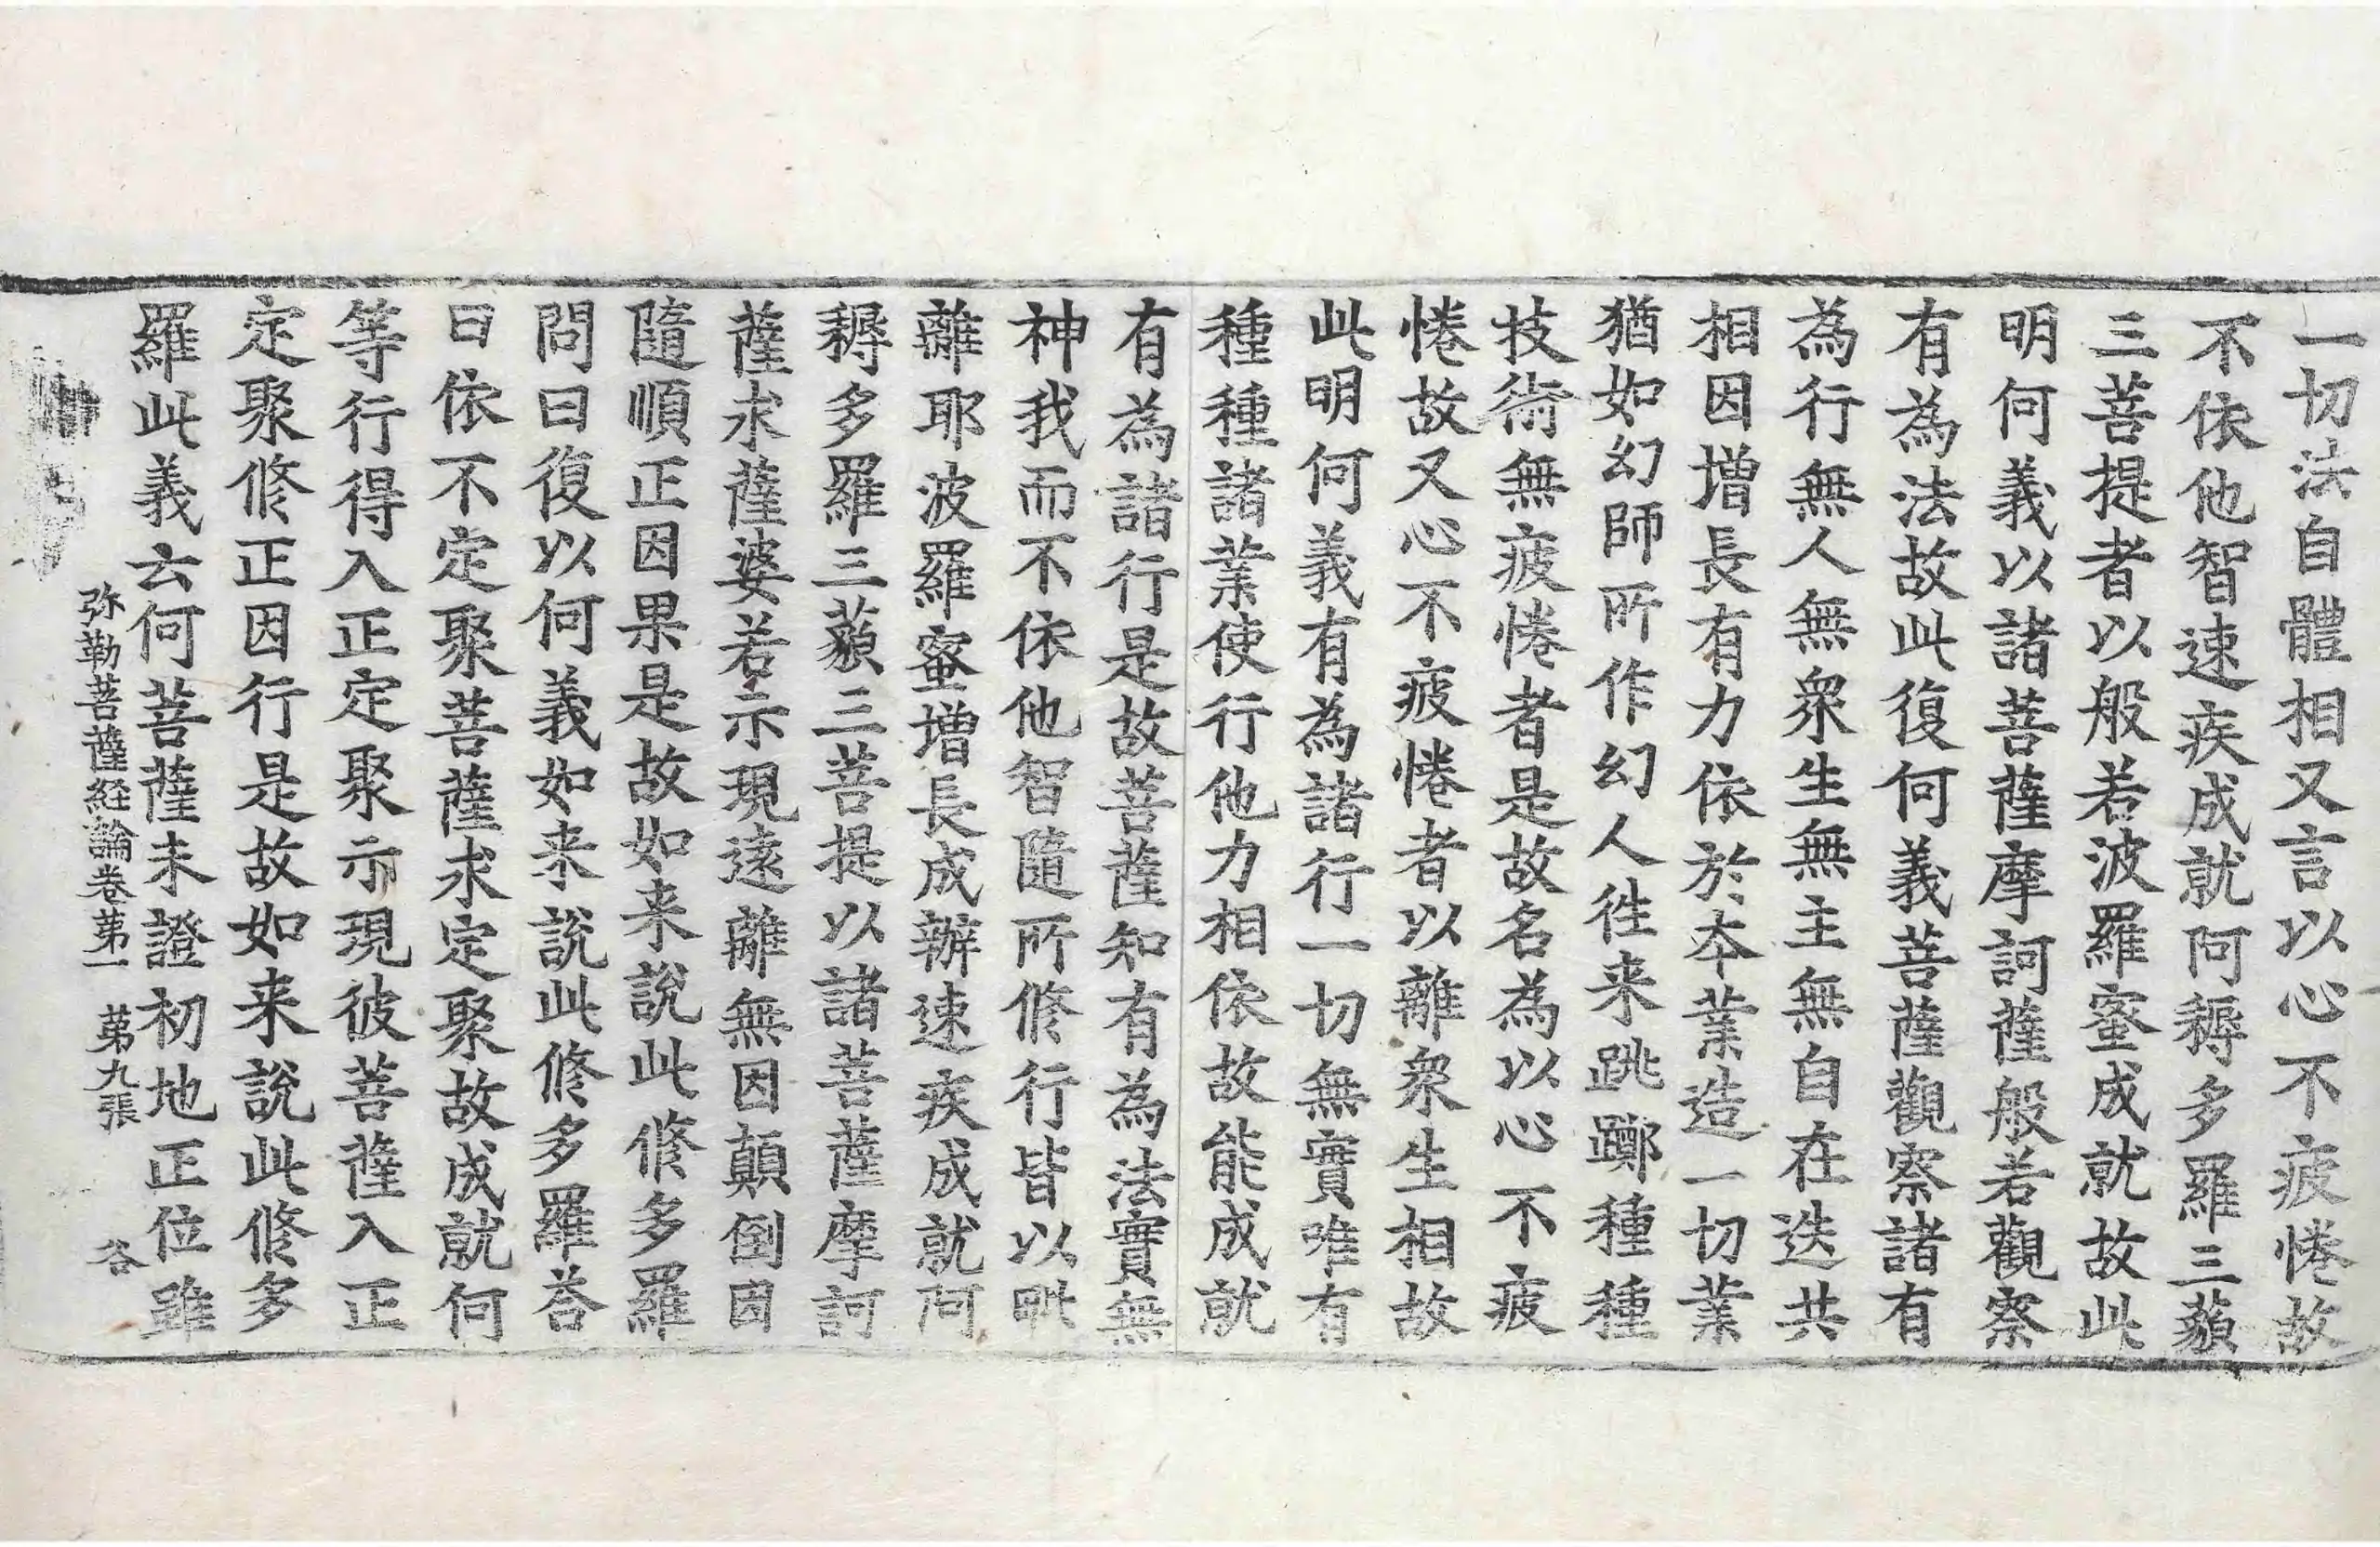 一切法自體相又言以心不疲惓故
不依他智速疾成就阿耨多羅三藐
三菩提者以般若波羅蜜成就故此
明何義以諸菩薩摩訶薩般若觀察
有為法故此復何義菩薩觀察諸有
為行無人無衆生無主無自在迭共
相因增長有力依於本業造一切業
猶如幻師所作幻人徃来跳躑種種
技術無疲惓者是故名為以心不疲
惓故又心不疲惓者以離衆生相故
此明何義有為諸行一切無實唯有
種種諸業使行他力相依故能成就
有為諸行是故菩薩知有為法實無
神我而不依他智隨所修行皆以毗
離耶波羅蜜增長成辦速疾成就阿
耨多羅三藐三菩提以諸菩薩摩訶
薩求薩婆若示現遠離無因顛倒因
隨順正因果是故如来說此修多羅
問曰復以何義如来說此修多羅荅
曰依不定聚菩薩求定聚故成就何
等行得入正定聚示現彼菩薩入正
定聚修正因行是故如来說此修多
羅此義云何菩薩未證初地正位雖
弥勒菩薩経論卷第一 第九張 谷